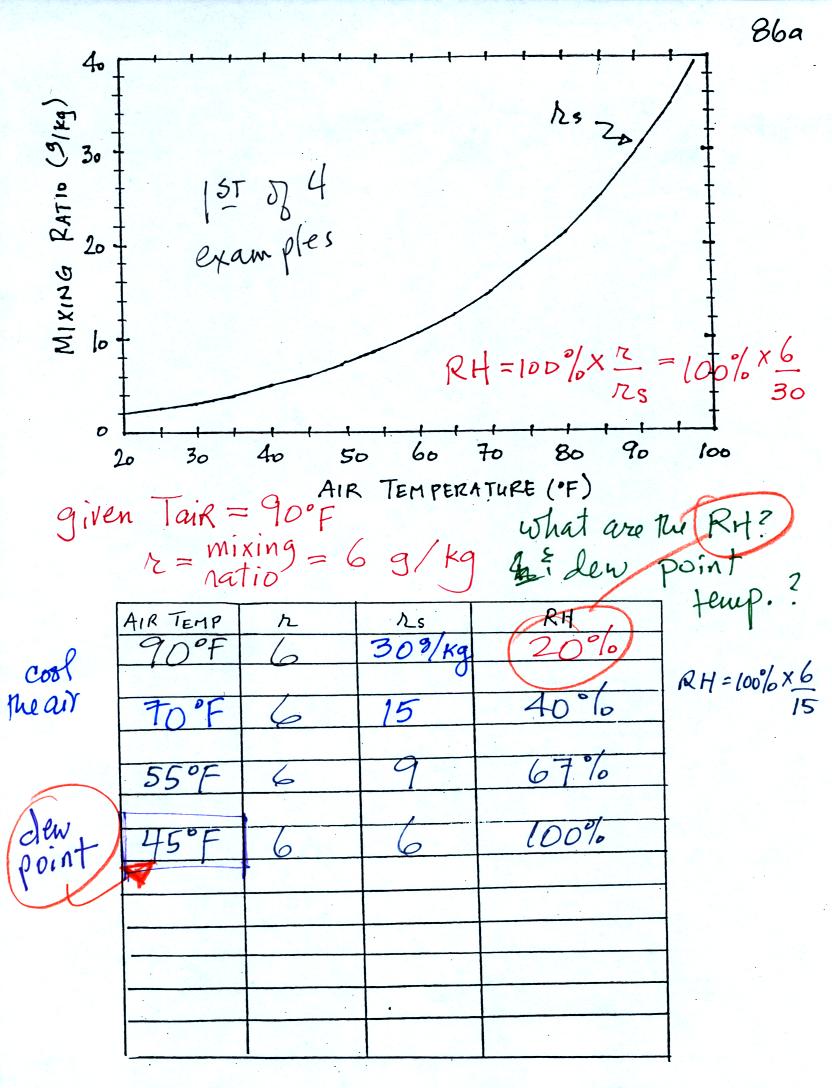 86a
40
30
20
10
0
MIXING RATIO (g/kg)
rs
1ST of 4
examples
RH = 100% × r/rs = 100% × 6/30
20 30 40 50 60 70 80 90 100
AIR TEMPERATURE (°F)
given TAIR = 90°F
r = mixing ratio = 6 g/kg
what are the RH?
& dew point
temp.?
AIR TEMP r rs RH
90°F 6 30g/kg 20%
cool
the air
70°F 6 15 40%
RH = 100% × 6/15
55°F 6 9 67%
dew
point
45°F 6 6 100%